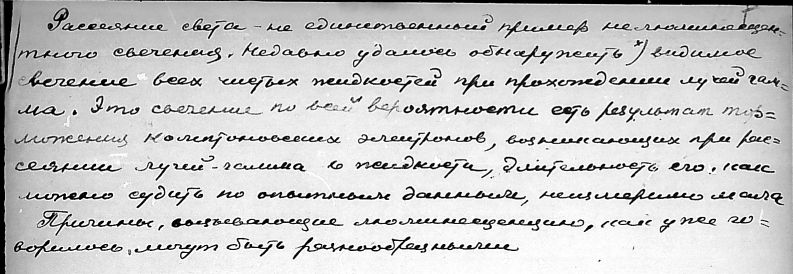 Рассеяние света - не единственный пример нелюминесцен-
тного свечения. Недавно удалось обнаружить*) видимое
свечение всех чистых жидкостей при прохождении лучей гам-
ма. Это свечение по всей вероятности есть результат тор=
можения комптоновских электронов, возникающих при рас-
сеянии лучей-гамма в жидкости, длительность его, как
можно судить по опытным данным, неизмеримо мала
Причины, вызывающие люминесценцию, как уже го=
ворилось, могут быть разнообразными